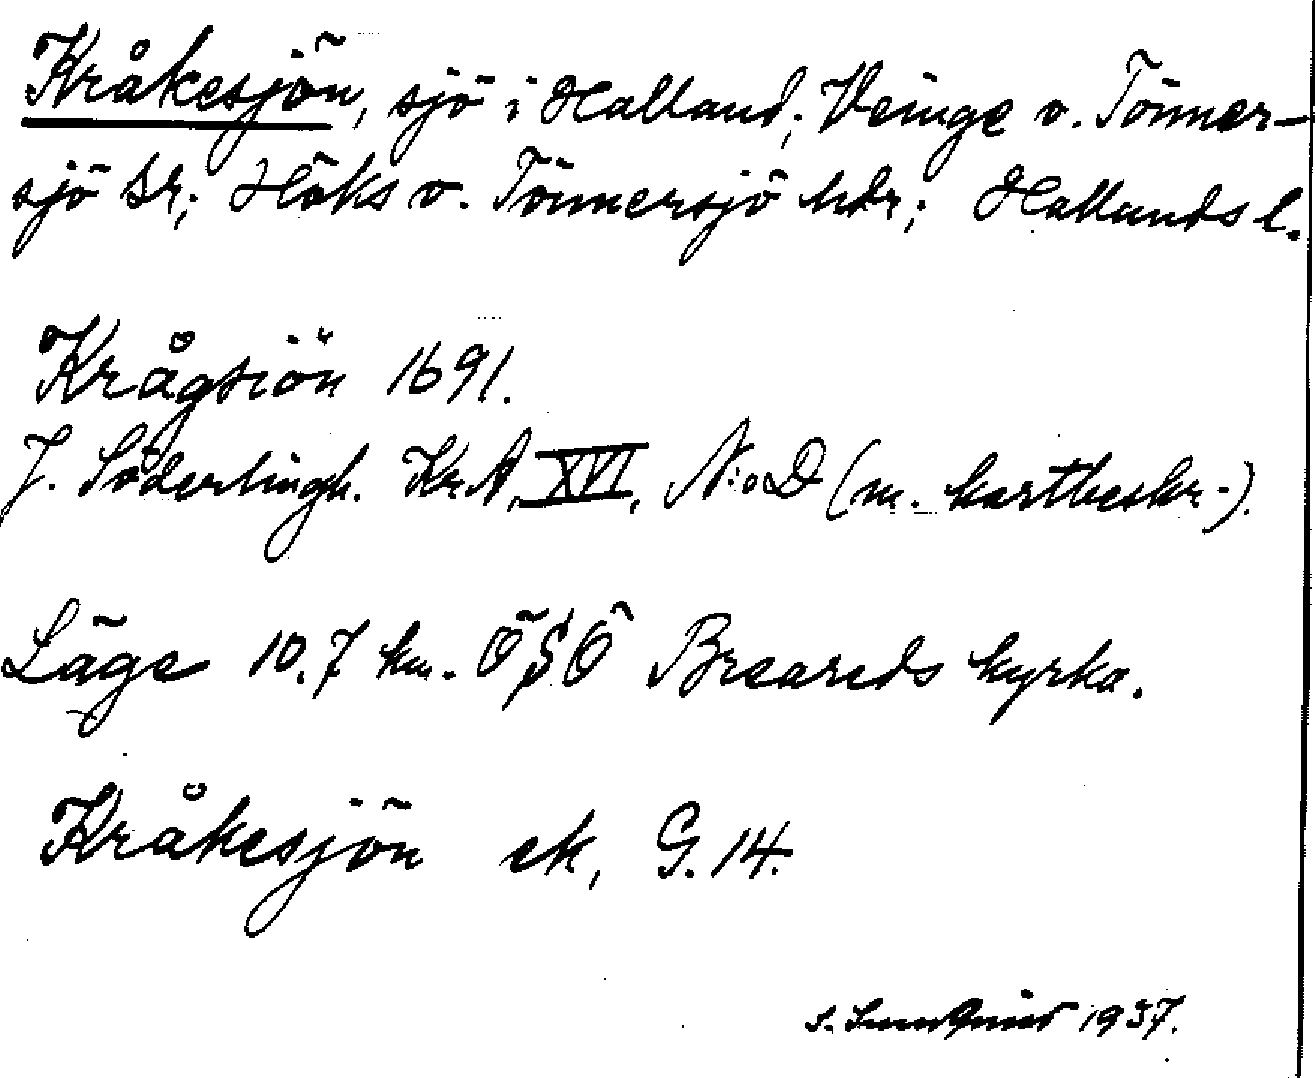 Kråkesjön, sjö i Halland; Veinge o. Tönner-
sjö sr; Höks o. Tönnersjö hdr; Hallands l.
Krågsiön 1691.
J. Söderlingh. Kr.A, XVI, N:o D (m. kartbeskr.).
Läge 10.7 km. ÖSÖ Breareds kyrka.
Kråkesjön ek, G. 14.
S. 1937.